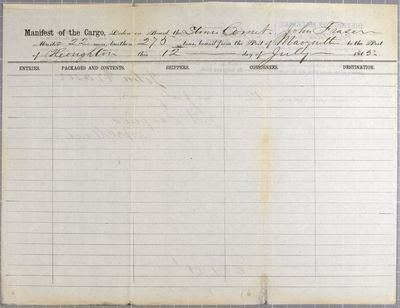 Manifest of the Cargo, Laden on Board the Stmr Comet John Fraser
Master 22 men, burthen 275 tons, bound from the Port of Marquette to the Port
of Houghton this 12 day of July 186
ENTRIES. PACKAGES AND CONTENTS. SHIPPERS. CONSIGNEES. DESTINATION.